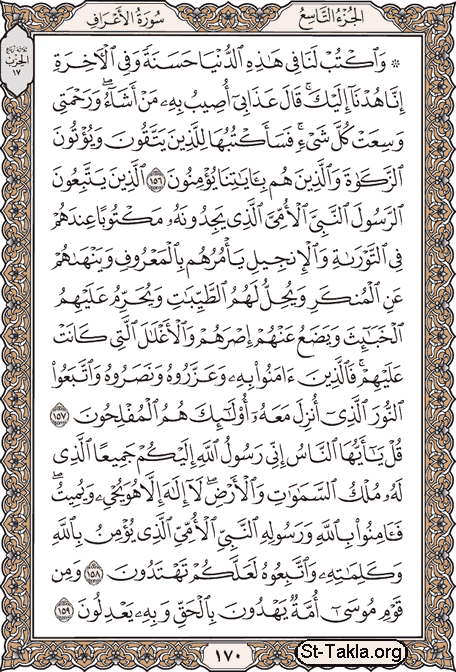 سُورَةُ الأَعْرَافِ
الجُزْءُ التَّاسِعُ
الحِزْبِ
١٧
۞ وَٱكْتُبْ لَنَا فِي هَٰذِهِ ٱلدُّنْيَا حَسَنَةً وَفِي ٱلْءَاخِرَةِ
إِنَّا هُدْنَآ إِلَيْكَۚ قَالَ عَذَابِيٓ أُصِيبُ بِهِۦ مَنْ أَشَآءُۖ وَرَحْمَتِي
وَسِعَتْ كُلَّ شَيْءٍۚ فَسَأَكْتُبُهَا لِلَّذِينَ يَتَّقُونَ وَيُؤْتُونَ
ٱلزَّكَوٰةَ وَٱلَّذِينَ هُم بِـَٔايَٰتِنَا يُؤْمِنُونَ ١٥٦ ٱلَّذِينَ يَتَّبِعُونَ
ٱلرَّسُولَ ٱلنَّبِيَّ ٱلْأُمِّيَّ ٱلَّذِي يَجِدُونَهُۥ مَكْتُوبًا عِندَهُمْ
فِي ٱلتَّوْرَىٰةِ وَٱلْإِنجِيلِ يَأْمُرُهُم بِٱلْمَعْرُوفِ وَيَنْهَىٰهُمْ
عَنِ ٱلْمُنكَرِ وَيُحِلُّ لَهُمُ ٱلطَّيِّبَٰتِ وَيُحَرِّمُ عَلَيْهِمُ
ٱلْخَبَٰٓئِثَ وَيَضَعُ عَنْهُمْ إِصْرَهُمْ وَٱلْأَغْلَٰلَ ٱلَّتِي كَانَتْ
عَلَيْهِمْۚ فَٱلَّذِينَ ءَامَنُوا۟ بِهِۦ وَعَزَّرُوهُ وَنَصَرُوهُ وَٱتَّبَعُوا۟
ٱلنُّورَ ٱلَّذِيٓ أُنزِلَ مَعَهُۥٓ أُو۟لَٰٓئِكَ هُمُ ٱلْمُفْلِحُونَ ١٥٧
قُلْ يَٰٓأَيُّهَا ٱلنَّاسُ إِنِّي رَسُولُ ٱللَّهِ إِلَيْكُمْ جَمِيعًا ٱلَّذِي
لَهُۥ مُلْكُ ٱلسَّمَٰوَٰتِ وَٱلْأَرْضِۖ لَآ إِلَٰهَ إِلَّا هُوَ يُحْيِۦ وَيُمِيتُۖ
فَـَٔامِنُوا۟ بِٱللَّهِ وَرَسُولِهِ ٱلنَّبِيِّ ٱلْأُمِّيِّ ٱلَّذِي يُؤْمِنُ بِٱللَّهِ
وَكَلِمَٰتِهِۦ وَٱتَّبِعُوهُ لَعَلَّكُمْ تَهْتَدُونَ ١٥٨ وَمِن
قَوْمِ مُوسَىٰٓ أُمَّةٌ يَهْدُونَ بِٱلْحَقِّ وَبِهِۦ يَعْدِلُونَ ١٥٩
١٧٠
St-Takla.org